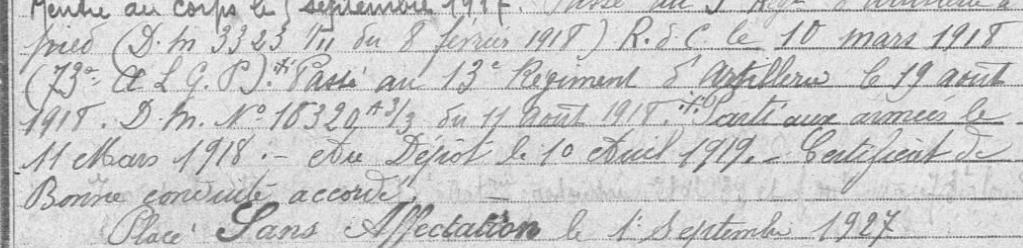 Rentré au corps le septembre 1917. Passé au Rég. d'artillerie à
pied (D.M 3323 1/11 du 8 février 1918) R.d.C le 10 mars 1918
(73e A L G P). Passé au 13e Régiment d'Artillerie le 19 août
1918. D.M. No 18320 A 3/3 du 11 août 1918. Parti aux armées le
11 Mars 1918. - Au Dépôt le 10 Avril 1919. - Certificat de
Bonne conduite accordé.
Placé Sans Affectation le 1r Septembre 1927